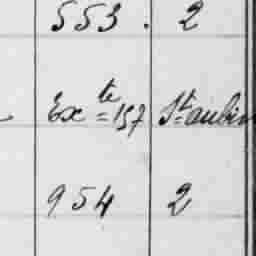 553. 2
Exte=157 St=aubin
954 2